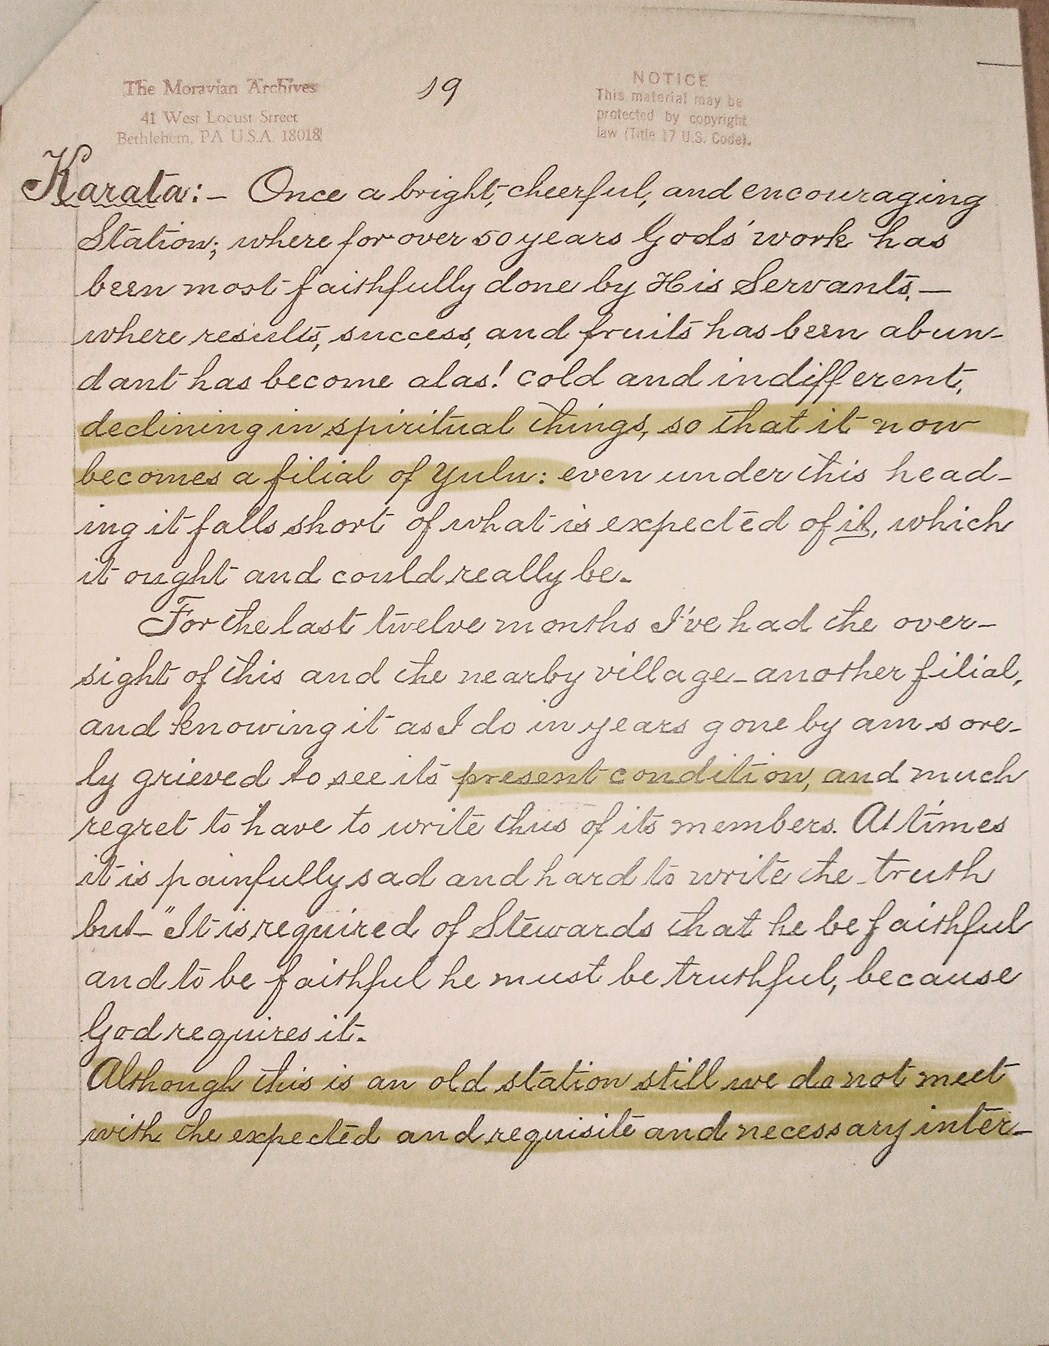 The Moravian Archives
41 West Locust Street
Bethlehem, PA U.S.A. 18018
19
NOTICE
This material may be
protected by copyright
law (Title 17 U.S. Code).
Karata:- Once a bright, cheerful, and encouraging
Station; where for over 50 years Gods' work has
been most faithfully done by His Servants,—
where results, success, and fruits has been abun-
dant has become alas! cold and indifferent,
declining in spiritual things, so that it now
becomes a filial of Yulu: even under this head-
ing it falls short of what is expected of it, which
it ought and could really be.
For the last twelve months I've had the over-
sight of this and the nearby village - another filial,
and knowing it as I do in years gone by am sore-
ly grieved to see its present condition, and much
regret to have to write thus of its members. At times
it is painfully sad and hard to write the truth
but - "It is required of Stewards that he be faithful
and to be faithful he must be truthful, because
God requires it.
Although this is an old station still we do not meet
with the expected and requisite and necessary inter-